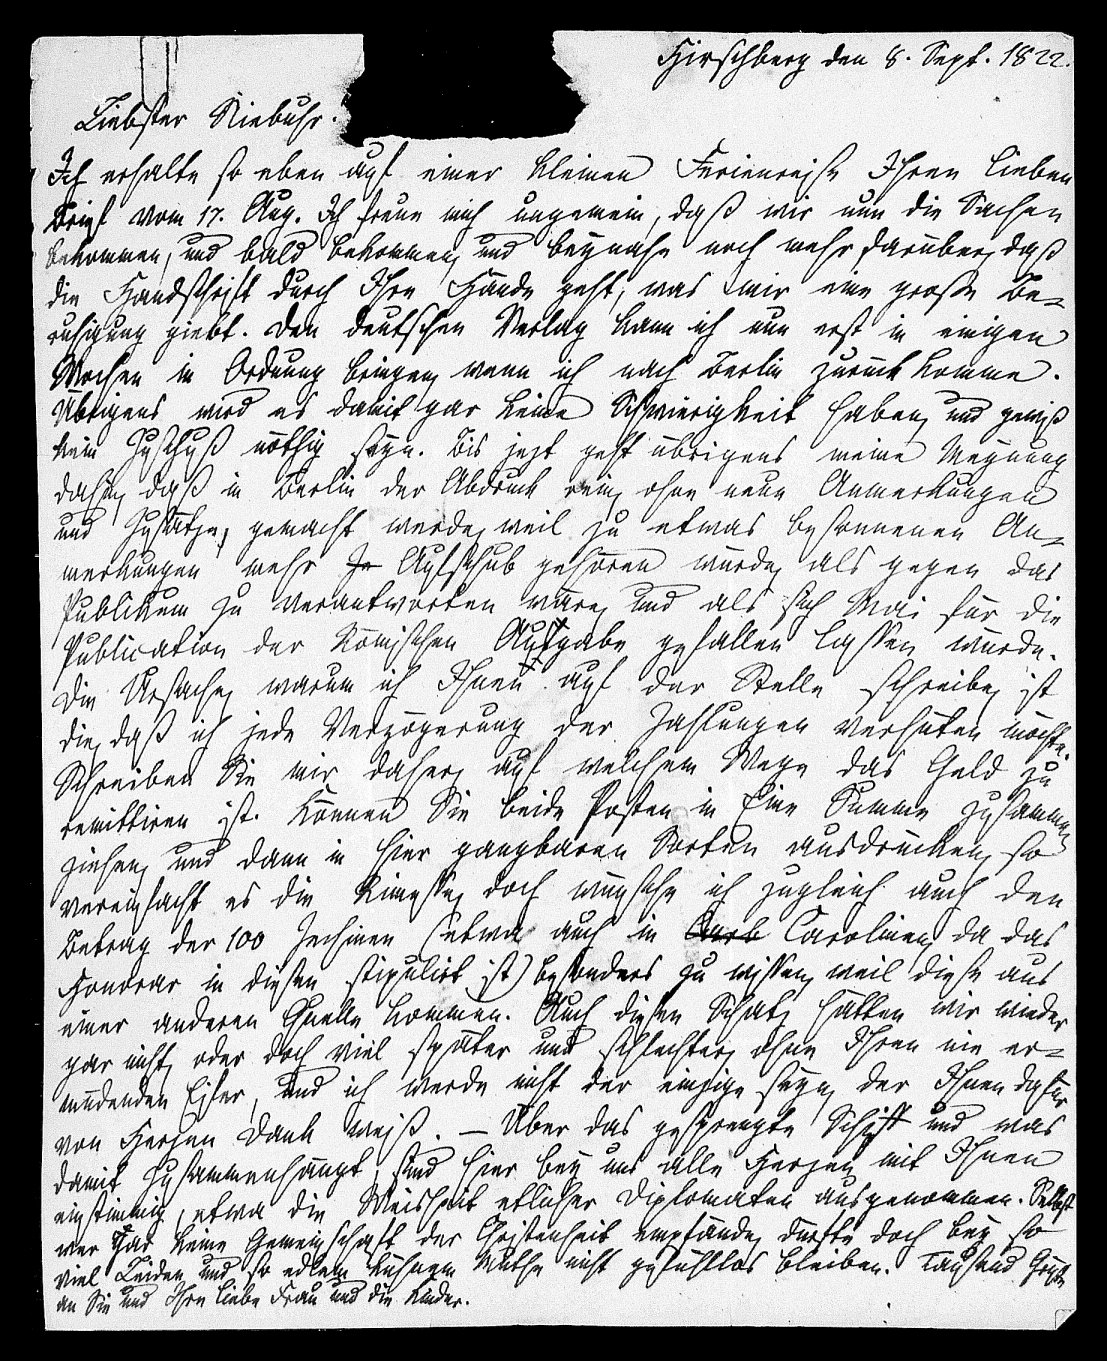 Hirschberg den 8. Sept. 1822.
Liebster Niebuhr.
Ich erhalte so eben auf einer kleinen Ferienreise Ihren lieben
Brief vom 17. Aug. Ich freue mich ungemein, daß wir nun die Sachen
bekommen, und bald bekommen, und beynahe noch mehr darüber, daß
die Handschrift durch Ihre Hände geht, was mir eine große Be-
ruhigung giebt. Den deutschen Verlag kann ich nun erst in einigen
Wochen in Ordnung bringen, wenn ich nach Berlin zurück komme.
Übrigens wird es damit gar keine Schwierigkeit haben, und gewiß
kein Zuschuß nöthig seyn. Bis jezt geht übrigens meine Meynung
dahin, daß in Berlin der Abdruck rein, ohne neue Anmerkungen
und Zusätze, gemacht werde, weil zu etwas besonnenen An-
merkungen mehr Aufschub gehören würde, als gegen das
Publikum zu verantworten wäre, und als sich Mai für die
Publication der Römischen Ausgabe gefallen lassen würde.
Die Ursache, warum ich Ihnen auf der Stelle schreibe, ist
die, daß ich jede Verzögerung der Zahlungen verhüten möchte.
Schreiben Sie mir daher, auf welchem Wege das Geld zu
remittiren ist. Können Sie beide Posten in Eine Summe zusammen
ziehen, und dann in hier gangbaren Sorten ausdrücken, so
vereinfacht es die Rimesse, doch wünsche ich zugleich auch den
Betrag der 100 Zechinen (etwa auch in Carolinen, da das
Honorar in diesen stipulirt ist) besonders zu wissen, weil diese aus
einer anderen Quelle kommen. Auch diesen Schatz hätten wir wieder
gar nicht, oder doch viel später und schlechter, ohne Ihren nie er-
müdenden Eifer, und ich werde nicht der einzige seyn, der Ihnen dafür
von Herzen Dank weiß. — Über das gesprengte Schiff und was
damit zusammenhängt, sind hier bey uns alle Herzen mit Ihnen
einstimmig, etwa die Weisheit etlicher Diplomaten ausgenommen. Selbst
wer gar keine Gemeinschaft der Christenheit empfände, dürfte doch bey so
viel Leiden und so edlem kühnem Muthe nicht gefühllos bleiben. Tausend Grüße
an Sie und Ihre liebe Frau und die Kinder.